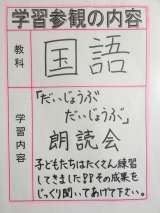 学習参観の内容
教科
国語
学習内容
「だいじょうぶ
だいじょうぶ」
朗読会
子どもたちはたくさん練習
してきました!!その成果を
じっくり聞いてあげて下さい。